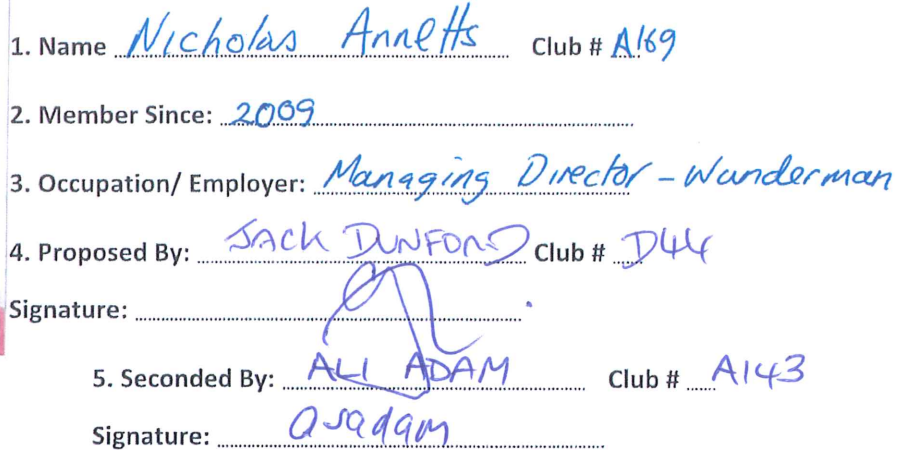 1. Name Nicholas Annetts Club # A169
2. Member Since: 2009
3. Occupation/ Employer: Managing Director - Wunderman
4. Proposed By: JACK DUNFORD Club # D44
Signature:
5. Seconded By: ALI ADAM Club # A143
Signature: asadam